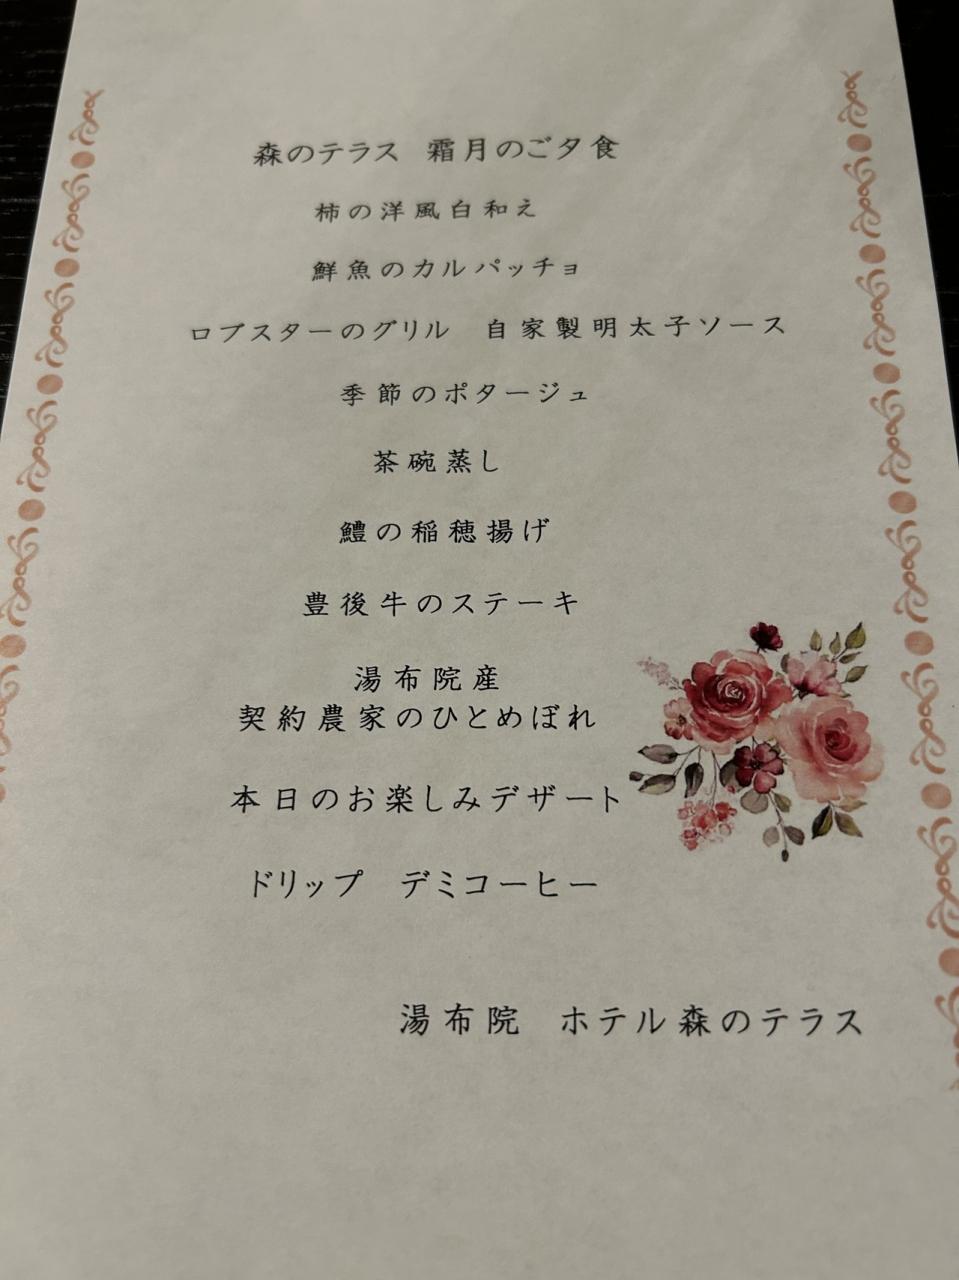 森のテラス　霜月のご夕食
柿の洋風白和え
鮮魚のカルパッチョ
ロブスターのグリル　自家製明太子ソース
季節のポタージュ
茶碗蒸し
鱧の稲穂揚げ
豊後牛のステーキ
湯布院産
契約農家のひとめぼれ
本日のお楽しみデザート
ドリップ　デミコーヒー
湯布院　ホテル森のテラス